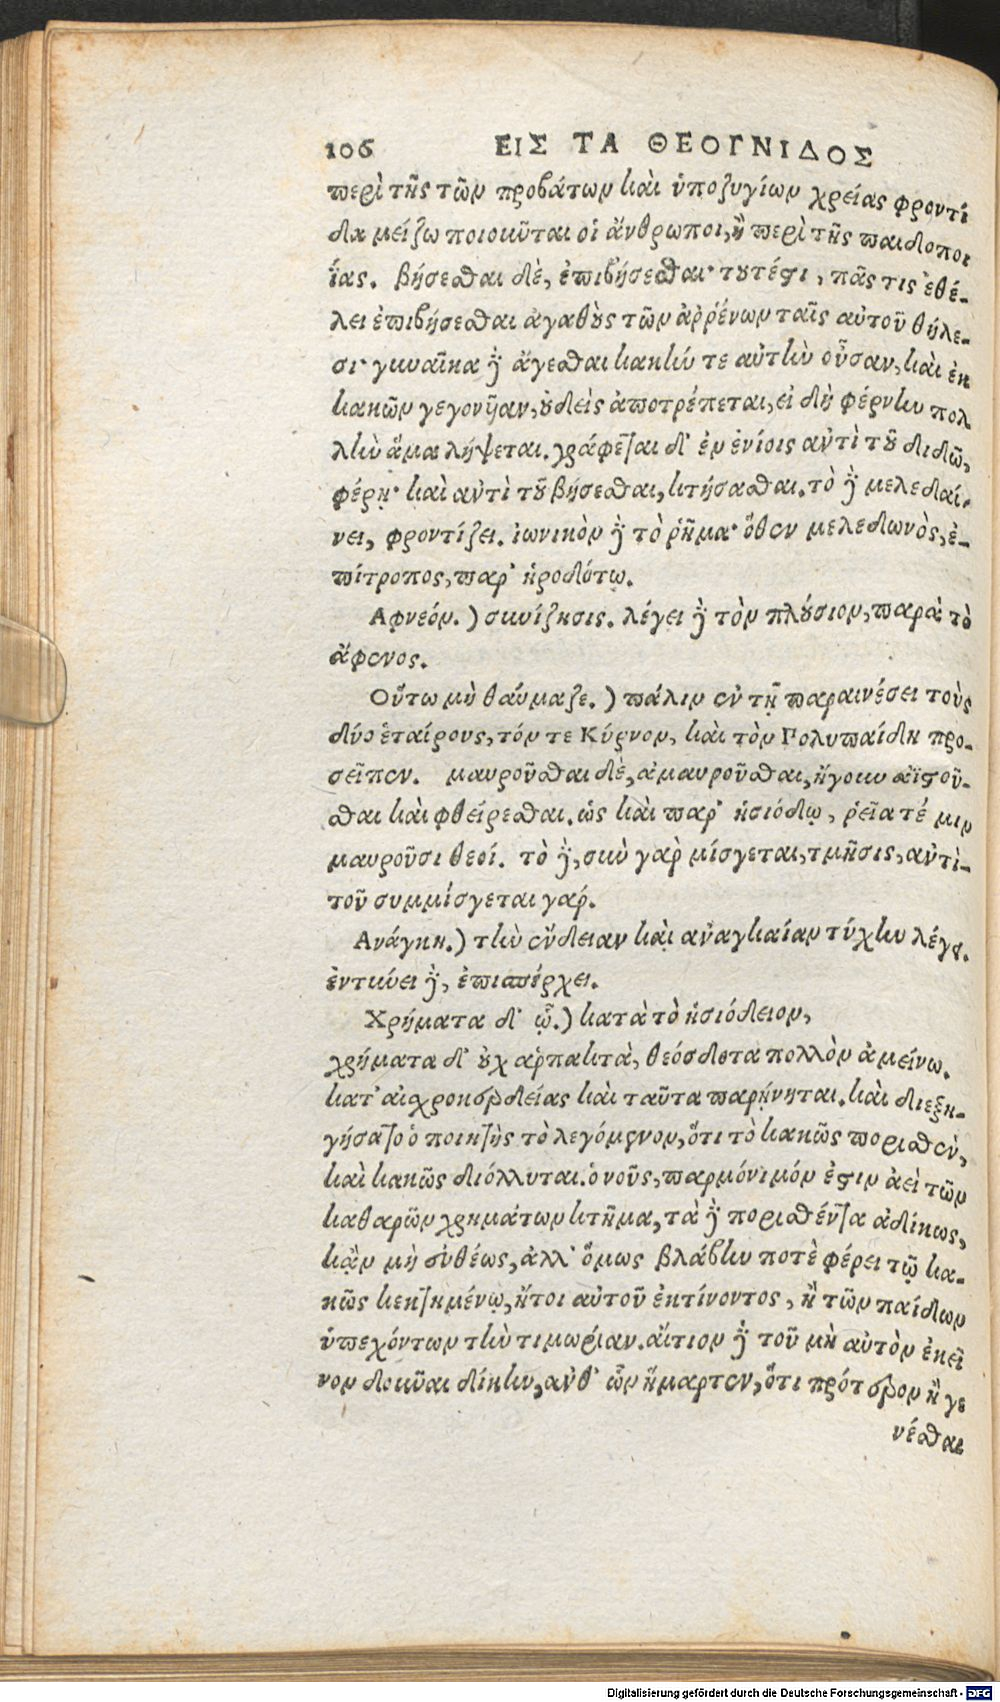 106 ΕΙΣ ΤΑ ΘΕΟΓΝΙΔΟΣ
περὶ τῆς τῶν προβάτων καὶ ὑποζυγίων χρείας φροντί
δα μείζω ποιοῦνται οἱ ἄνθρωποι, ἢ περὶ τῆς παιδοποι
ΐας. βήσεσθαι δὲ, ἐπιβήσεσθαι· τουτέστι, πᾶς τις ἐθέ-
λει ἐπιβήσεσθαι ἀγαθοὺς τῶν ἀῤῥένων ταῖς αὐτοῦ θήλε-
σι· γυναῖκα δὲ ἄγεσθαι κακήν τε αὐτὴν οὖσαν, καὶ ἐκ
κακῶν γεγονυῖαν, οὐδεὶς ἀποτρέπεται, εἰ δὴ φέρνην πολ
λὴν ἅμα λήψεται. γράφεται δ' ἐν ἐνίοις ἀντὶ τοῦ διδῶ,
φέρῃ· καὶ ἀντὶ τοῦ βήσεσθαι, κτήσασθαι. τὸ δὲ μελεδαί-
νει, φροντίζει. ἰωνικὸν δὲ τὸ ῥῆμα· ὅθεν μελεδωνὸς, ἐ-
πίτροπος, παρ' ἡροδότῳ.
Αφνεόν.) συνίζησις. λέγει δὲ τὸν πλούσιον, παρὰ τὸ
ἄφενος.
Οὕτω μὴ θαύμαζε.) πάλιν ἐν τῇ παραινέσει τοὺς
δύο ἑταίρους, τόν τε Κύρνον, καὶ τὸν Πολυπαίδη προ-
σεῖπεν. μαυροῦσθαι δὲ, ἀμαυροῦσθαι, ἤγουν ἀϊστοῦ-
σθαι καὶ φθείρεσθαι. ὡς καὶ παρ' ἡσιόδῳ, ῥεῖα τέ μιν
μαυροῦσι θεοί. τὸ δὲ, σὺν γὰρ μίσγεται, τμῆσις, ἀντὶ-
τοῦ συμμίσγεται γάρ.
Ανάγκη.) τὴν ἔνδειαν καὶ ἀναγκαίαν τύχην λέγει.
ἐντύνει δὲ, ἐπισπέρχει.
Χρήματα δ' ᾧ.) κατὰ τὸ ἡσιόδειον,
χρήματα δ' οὐχ ἁρπακτὰ, θεόσδοτα πολλὸν ἀμείνω.
κατ' αἰσχροκερδείας καὶ ταῦτα παρῄνηται. καὶ διεξη-
γήσατο ὁ ποιητὴς τὸ λεγόμενον, ὅτι τὸ κακῶς πορισθὲν,
καὶ κακῶς διόλλυται. ὁ νοῦς, παρμόνιμόν ἐστιν ἀεὶ τῶν
καθαρῶν χρημάτων κτῆμα, τὰ δὲ πορισθέντα ἀδίκως,
κἂν μὴ εὐθέως, ἀλλ' ὅμως βλάβην ποτὲ φέρει τῷ κα-
κῶς κεκτημένῳ, ἤτοι αὐτοῦ ἐκτίνοντος, ἢ τῶν παίδων
ὑπεχόντων τὴν τιμωρίαν. αἴτιον δὲ τοῦ μὴ αὐτὸν ἐκεῖ
νον δοῦναι δίκην, ἀνθ' ὧν ἥμαρτεν, ὅτι πρότερον ἢ γε
νέσθαι
Digitalisierung gefördert durch die Deutsche Forschungsgemeinschaft - DFG